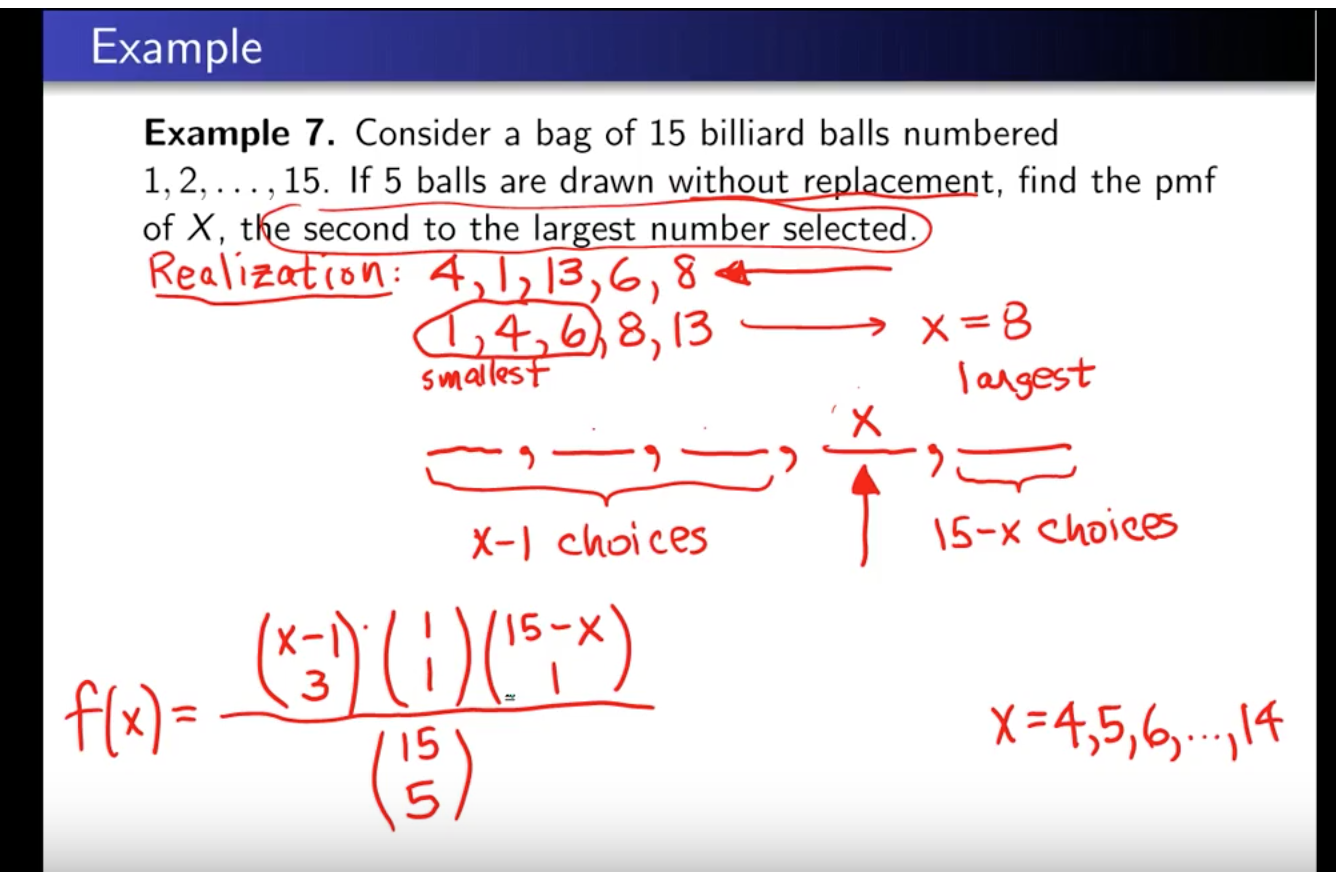 Example
Example 7. Consider a bag of 15 billiard balls numbered
1, 2, . . . , 15. If 5 balls are drawn without replacement, find the pmf
of X, the second to the largest number selected.
Realization: 4, 1, 13, 6, 8
1, 4, 6, 8, 13 → x = 8
smallest largest
__, __, __, x, __
x-1 choices 15-x choices
f(x) = (x-1 3)·(1 1)(15-x 1) / (15 5) x = 4,5,6,...,14